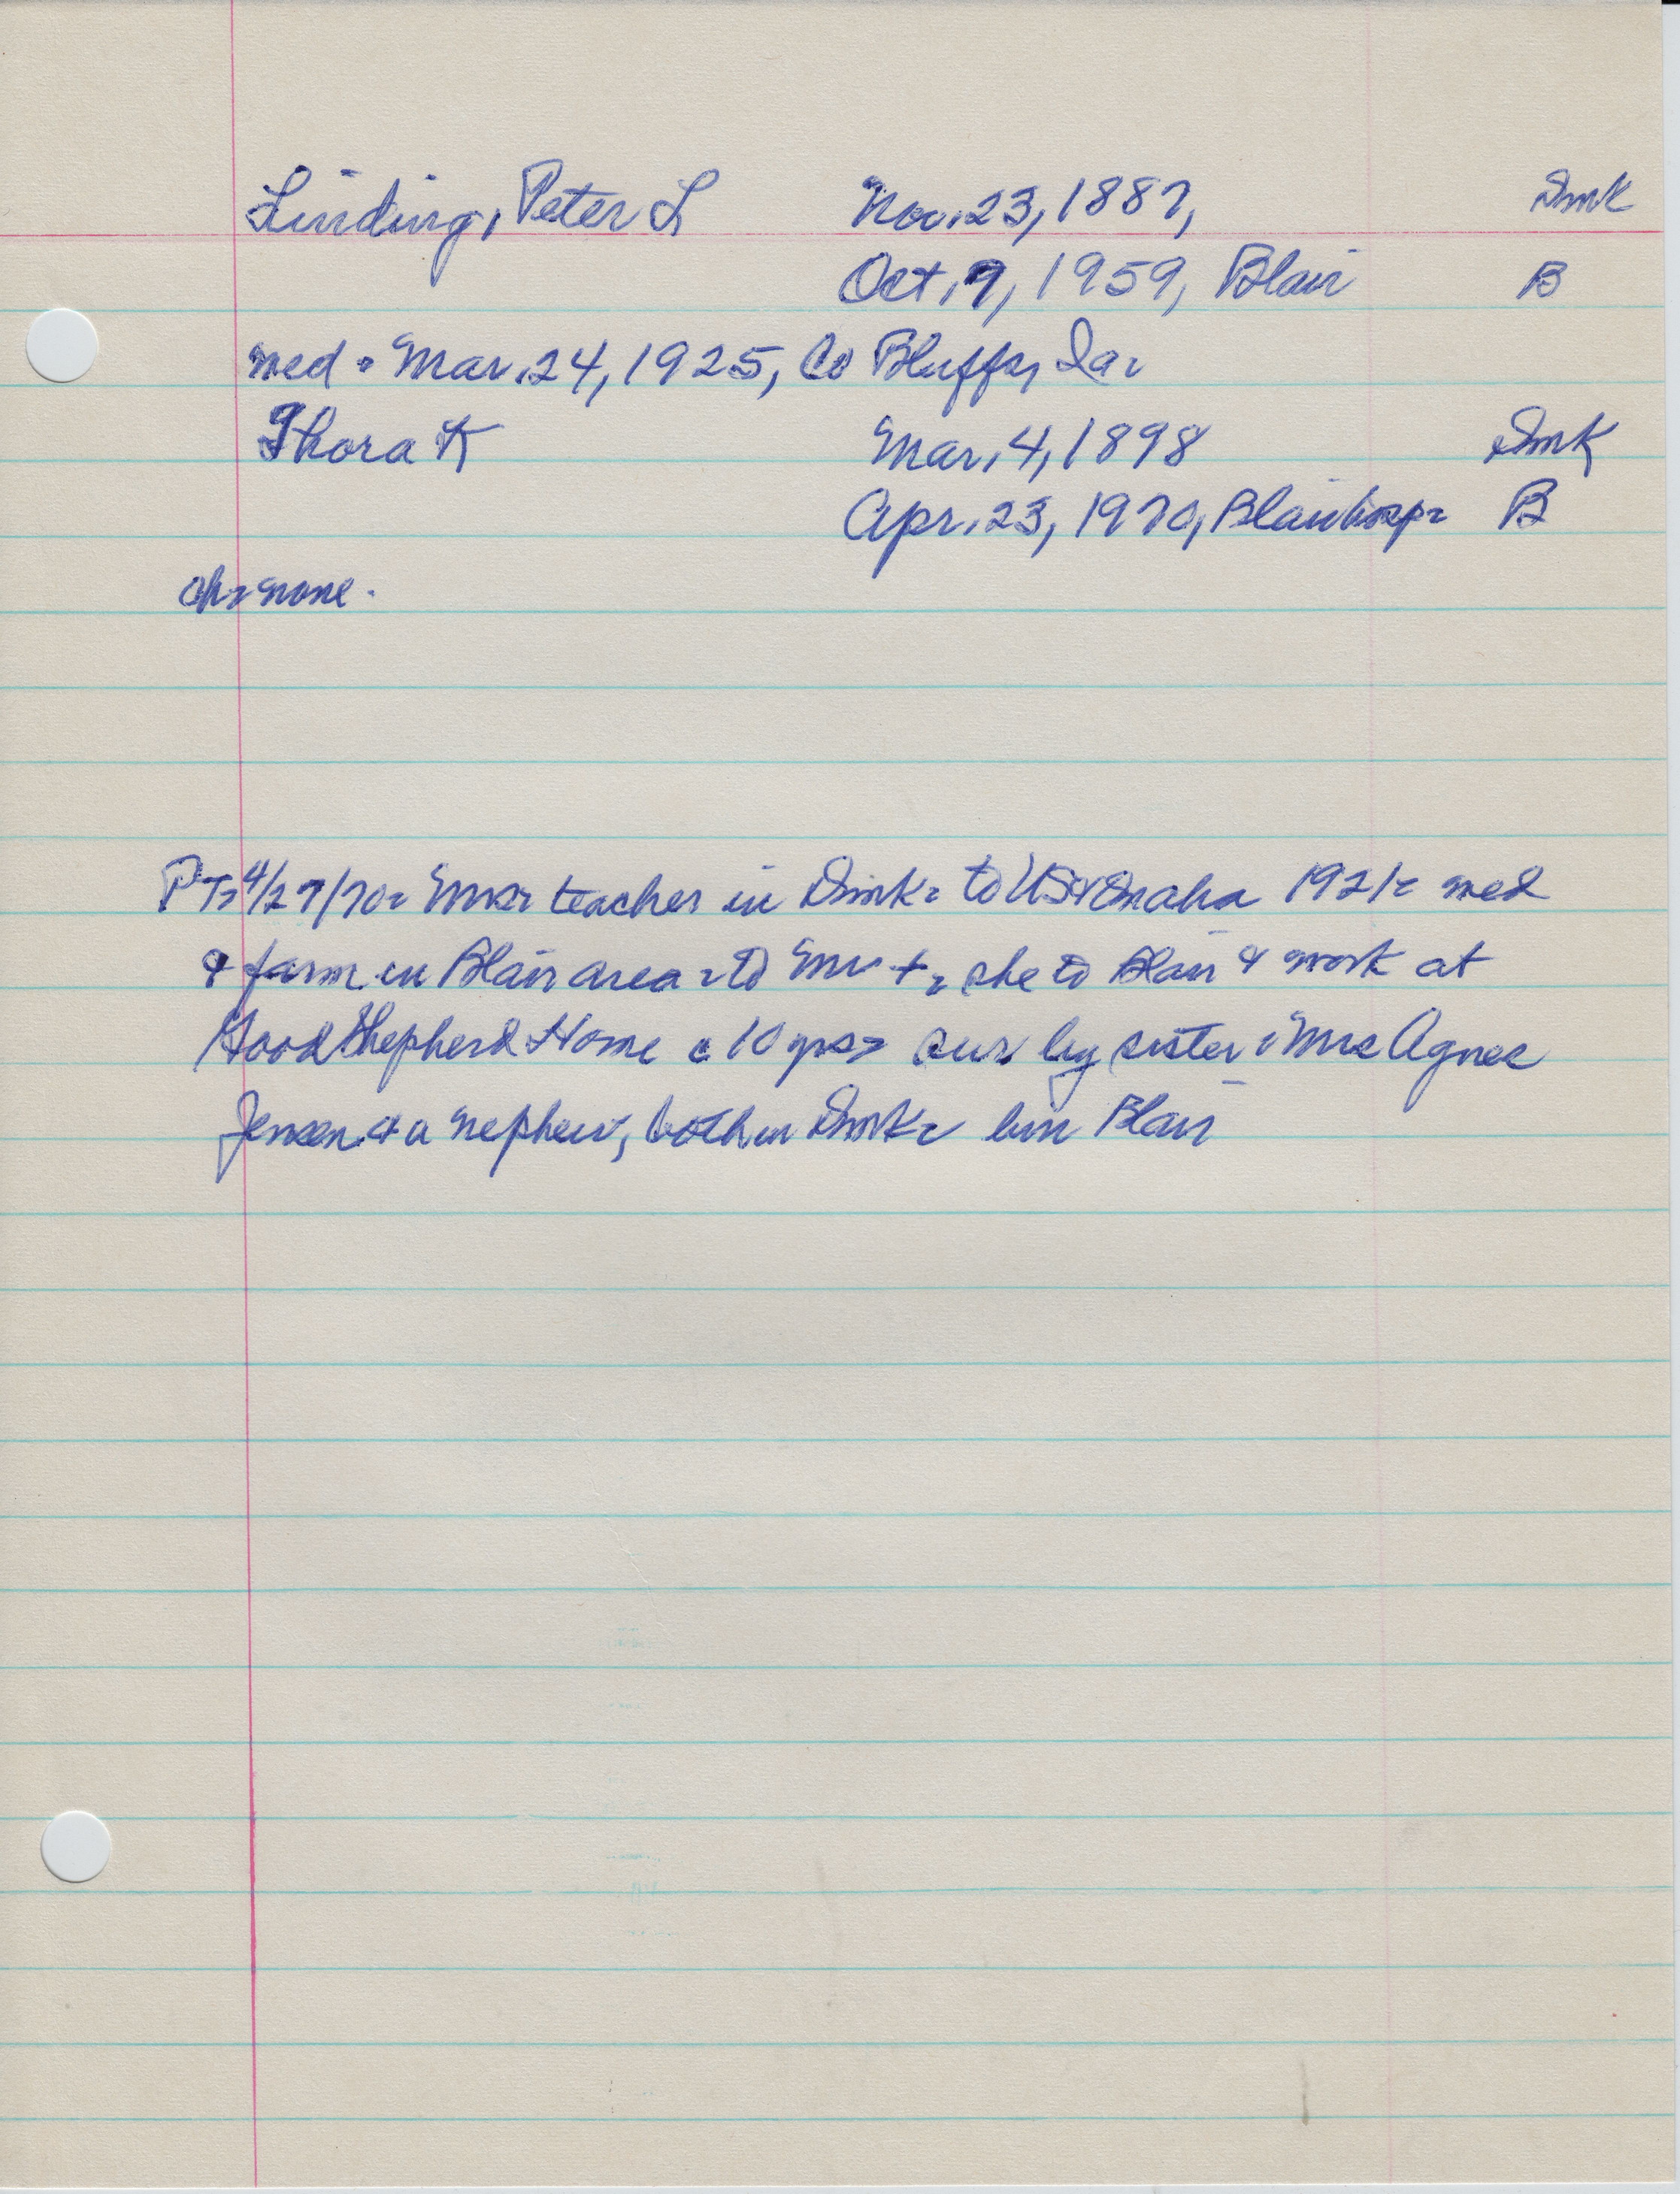 Linding, Peter L Nov. 23, 1887, Dmk
Oct. 9, 1959, Blair B
med - Mar. 24, 1925, Co Bluffs, Ia -
Thora K Mar. 4, 1898 Dmk
Apr. 23, 1970, Blair hosp - B
ch - none.
PT - 4/27/70 - Mrs - teacher in Dmk - to US & Omaha 1921 - med
& farm in Blair area - to Mr +, she to Blair & work at
Good Shepherd Home c 10 yrs - sur by sister: Mrs Agnes
Jensen & a nephew, both in Dmk - bur Blair